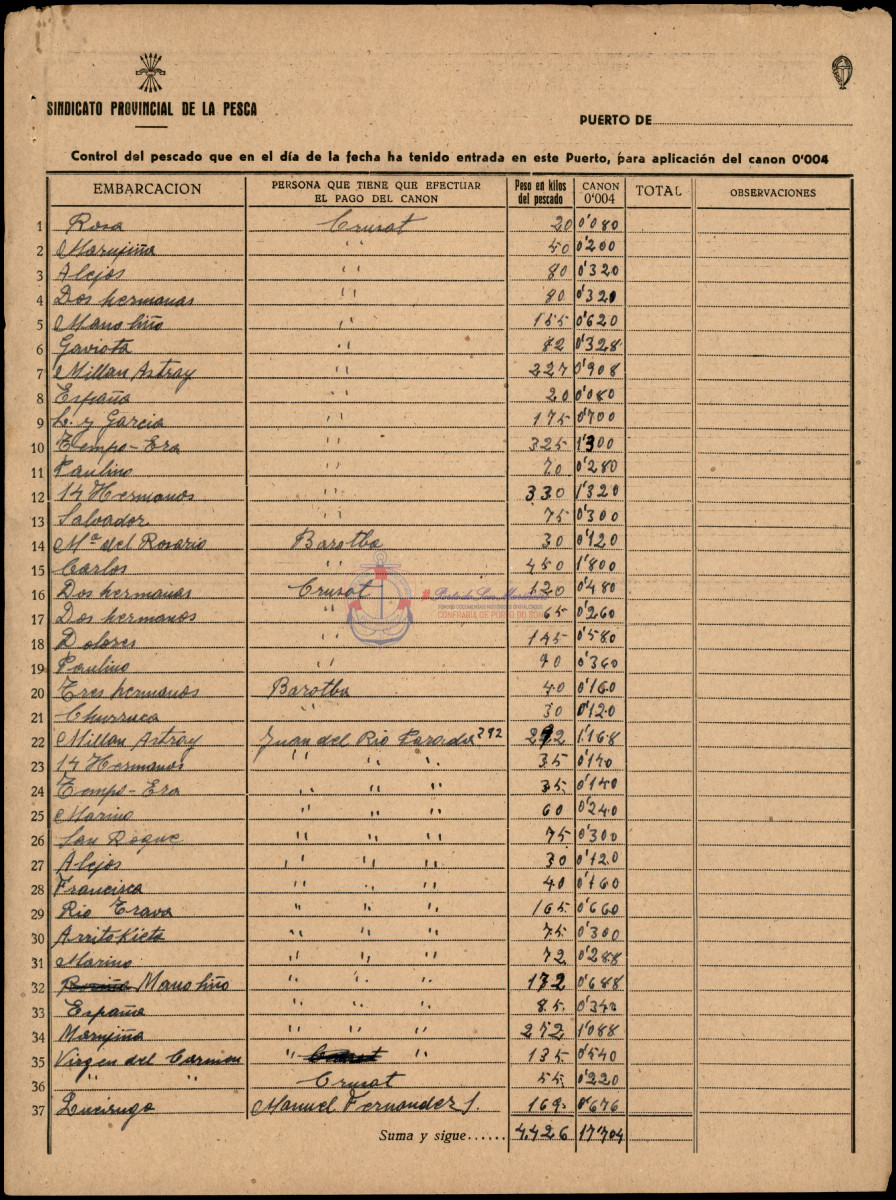 SINDICATO PROVINCIAL DE LA PESCA
PUERTO DE
Control del pescado que en el día de la fecha ha tenido entrada en este Puerto, para aplicación del canon 0'004
EMBARCACION PERSONA QUE TIENE QUE EFECTUAR EL PAGO DEL CANON Peso en kilos del pescado CANON 0'004 TOTAL OBSERVACIONES
1 Rosa Crusat 20 0'080
2 Marujiña " 50 0'200
3 Alejos " 80 0'320
4 Dos hermanas " 80 0'320
5 Mano liño " 155 0'620
6 Gaviota " 82 0'328
7 Millan Astray " 227 0'908
8 España " 20 0'080
9 L. y Garcia " 175 0'700
10 Tempo-Era " 325 1'300
11 Paulino " 70 0'280
12 14 Hermanos " 330 1'320
13 Salvador " 75 0'300
14 Mª del Rosario Barotba 30 0'120
15 Carlos " 450 1'800
16 Dos hermanas Crusat 120 0'480
17 Dos hermanos " 65 0'260
18 Dolores " 145 0'580
19 Paulino " 90 0'360
20 Tres hermanos Barotba 40 0'160
21 Churruca " 30 0'120
22 Millan Astray Juan del Rio Parada 292 292 1'168
23 14 Hermanos " " " 35 0'140
24 Tempo-Era " " " 35 0'140
25 Marino " " " 60 0'240
26 San Roque " " " 75 0'300
27 Alejos " " " 30 0'120
28 Francisca " " " 40 0'160
29 Rio Trava " " " 165 0'660
30 Arritokieta " " " 75 0'300
31 Marino " " " 72 0'288
32 Mano liño " " " 172 0'688
33 España " " " 85 0'340
34 Marujiña " " " 272 1'088
35 Virgen del Carmen " " 135 0'540
36 " " Crusat 55 0'220
37 Manuel Fernandez S. 169 0'676
Suma y sigue...... 4.426 17'704
Porto do Son
CONFRARÍA DE PORTO DO SON